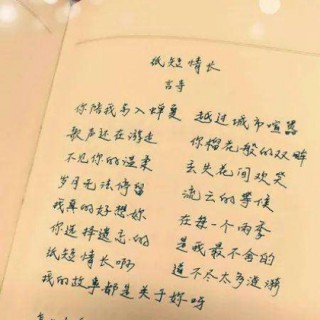 纸短情长
言寺
你陪我步入蝉夏
越过城市喧嚣
歌声还在游走
你榴花般的双眸
不见你的温柔
丢失花间欢笑
岁月无法停留
流云的等候
我真的好想你
在每一个雨季
你选择遗忘的
是我最不舍的
纸短情长啊
道不尽太多涟漪
我的故事都是关于你呀